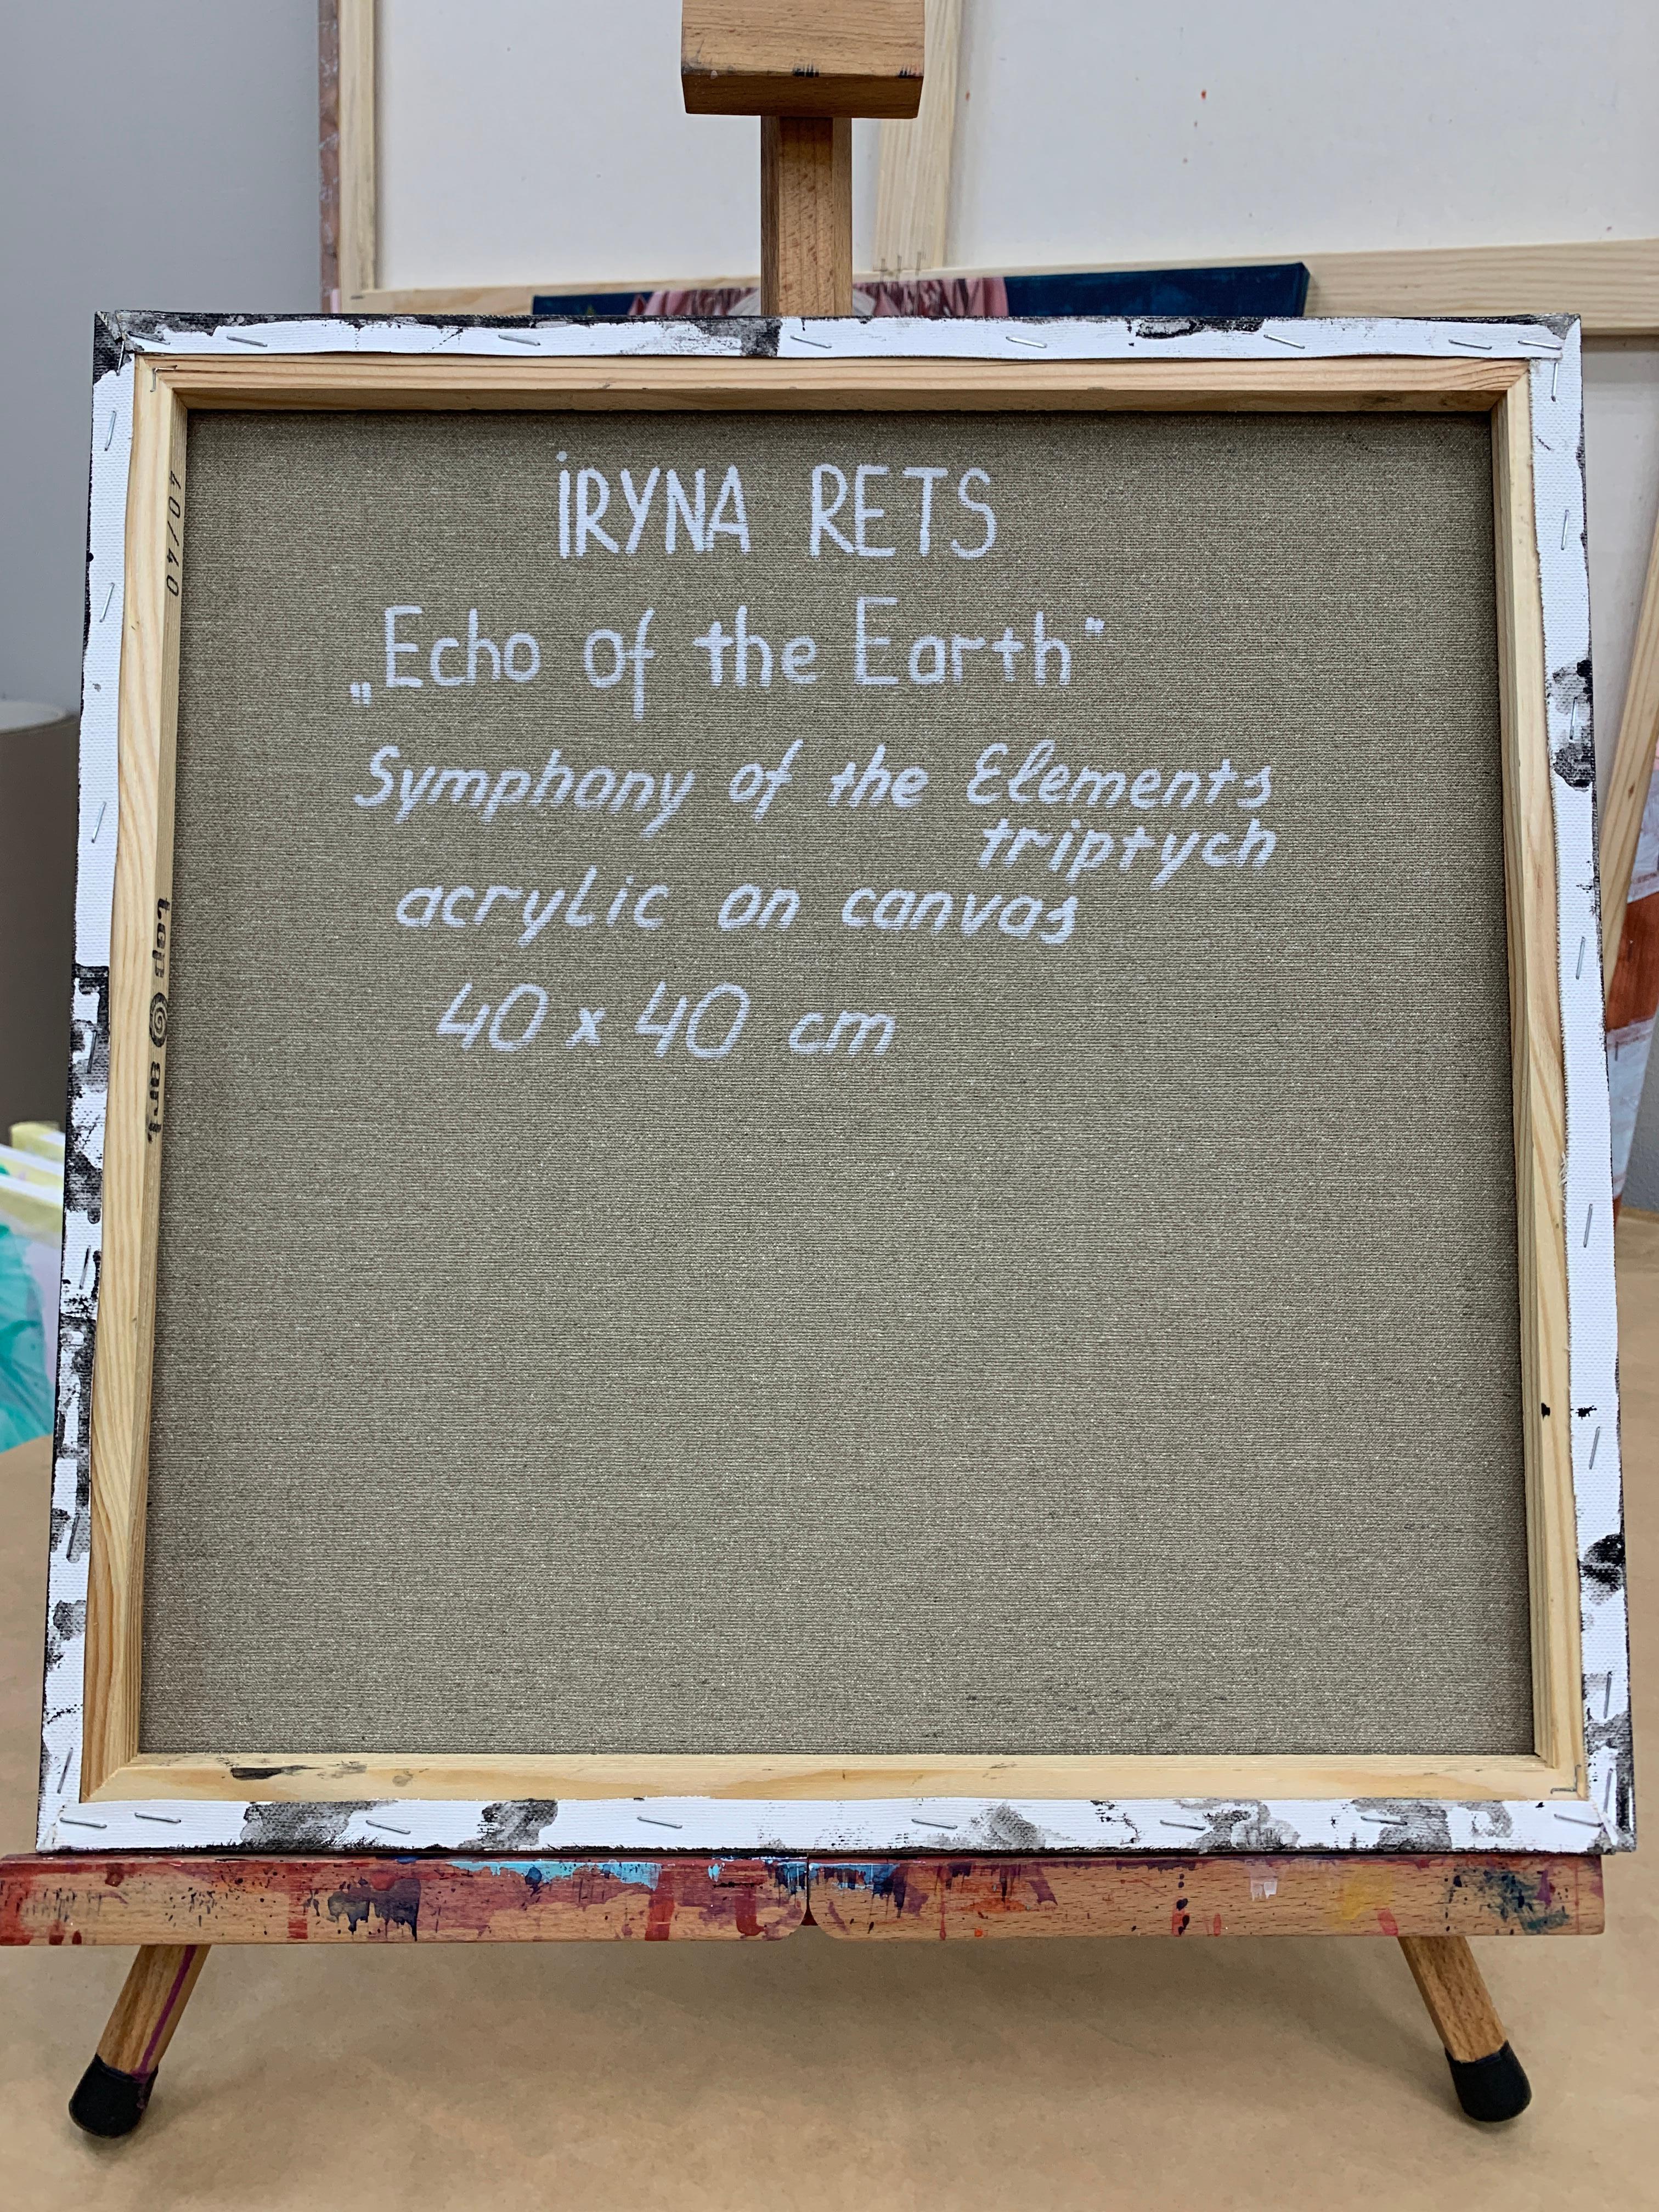 IRYNA RETS
„Echo of the Earth"
Symphony of the Elements
triptych
acrylic on canvas
40 x 40 cm
40/40
top art